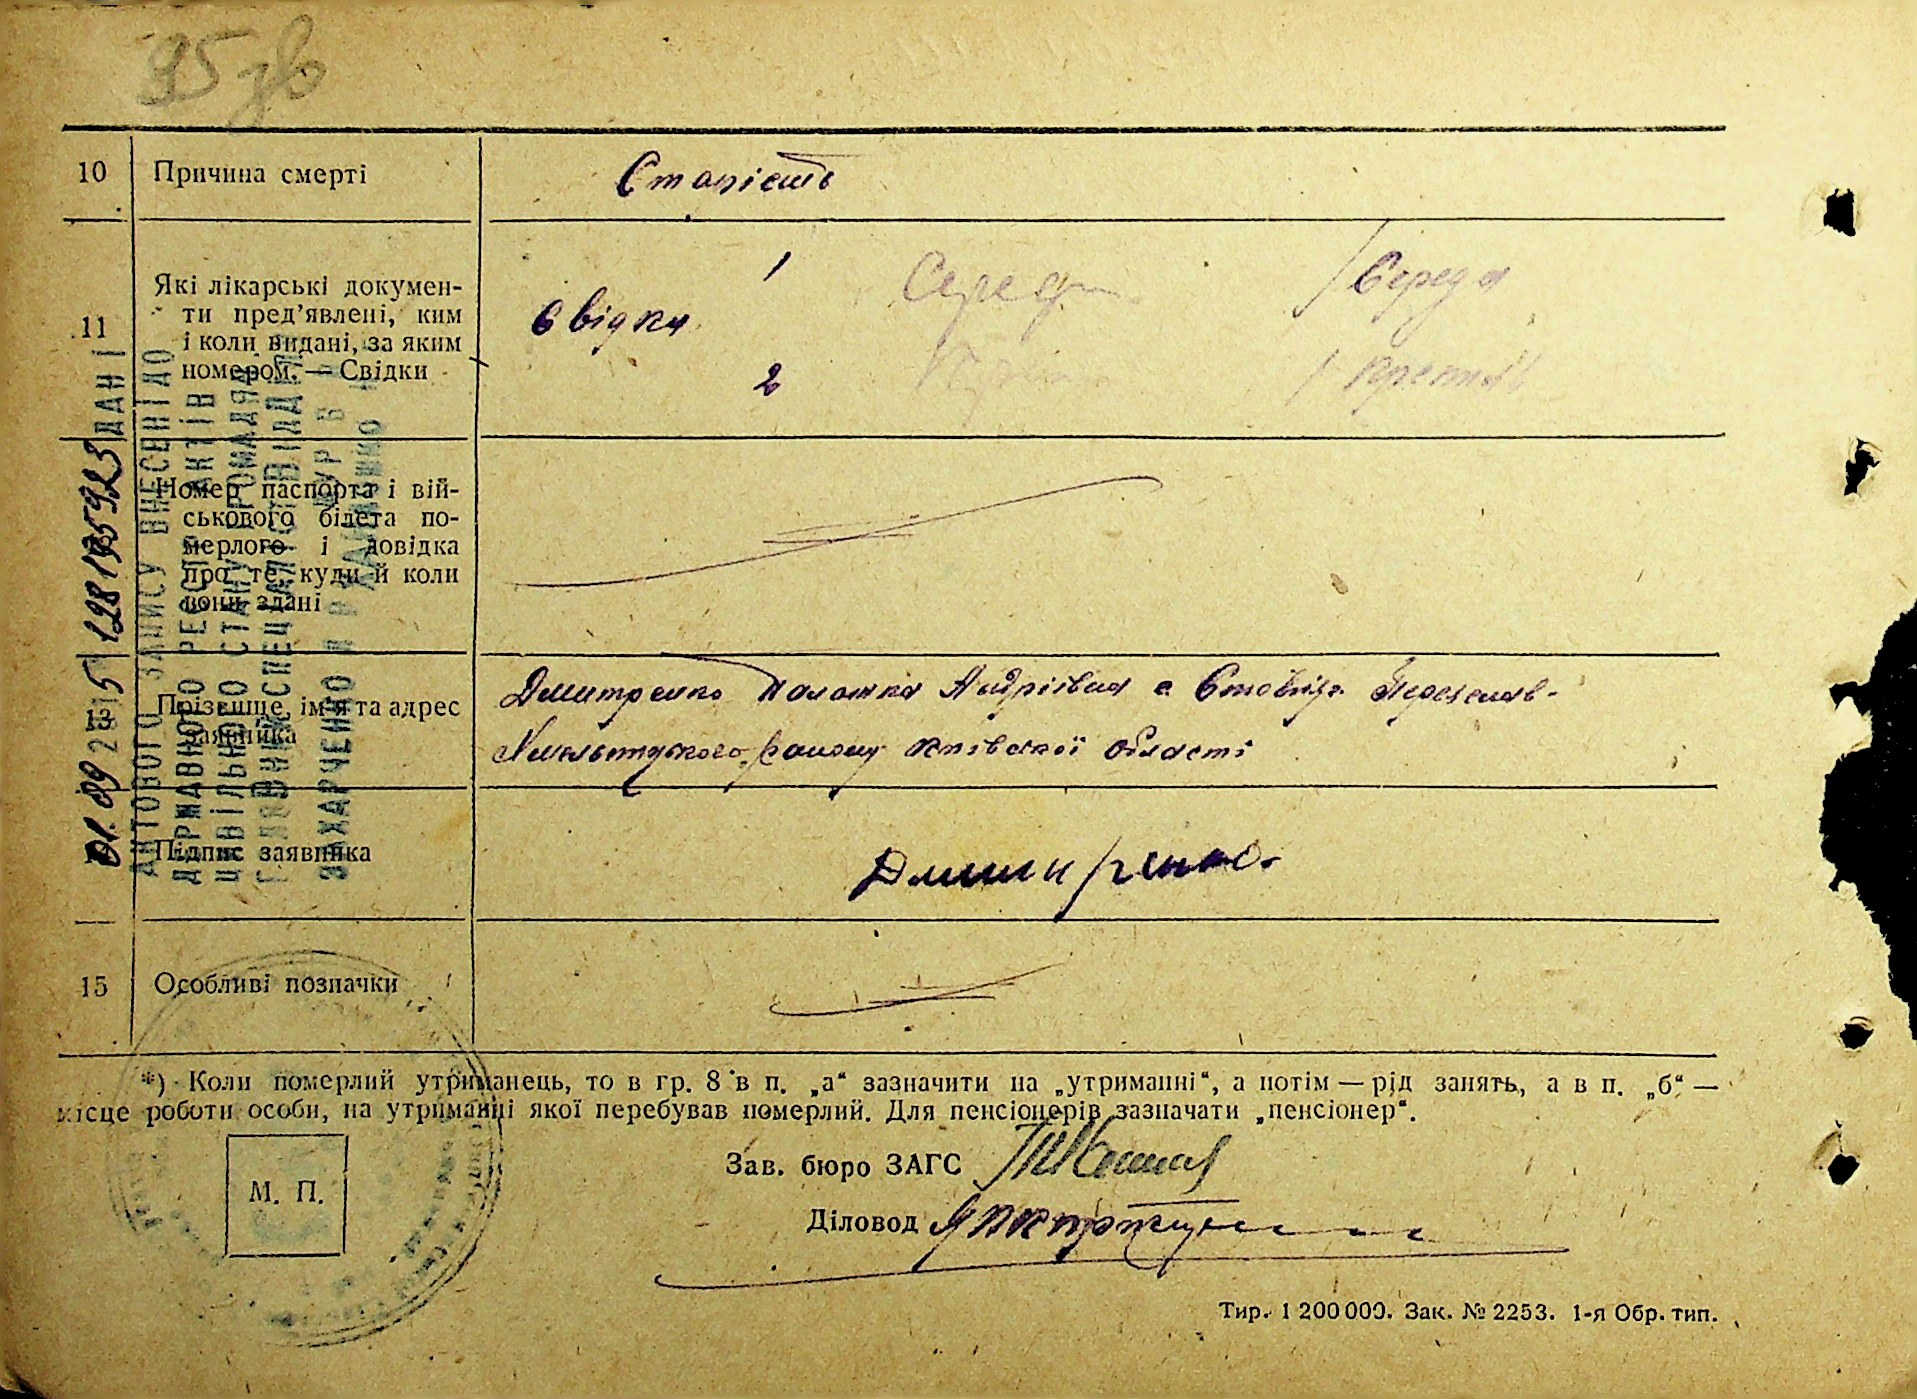 95 зв
10 Причина смерті Старість
11 Які лікарські докумен-
ти пред'явлені, ким
і коли видані, за яким
номером. — Свідки
Свідки 1 Серед /Середа
2
Номер паспорта і вій-
ськового білета по-
мерлого і довідка
про те, куди й коли
вони здані
Прізвище, ім'я та адрес
заявника
Дмитренко Палажка Андріївна с Стовп'яги Переяслав-
Хмельницького району Київської області
Підпис заявника Дмитренко
15 Особливі позначки
*) Коли померлий утриманець, то в гр. 8 в п. „а“ зазначити на „утриманні“, а потім — рід занять, а в п. „б“ —
місце роботи особи, на утриманні якої перебував померлий. Для пенсіонерів зазначати „пенсіонер“.
М. П.
Зав. бюро ЗАГС
Діловод
Тир. 1 200 000. Зак. № 2253. 1-я Обр. тип.
01.09 2015 128195923 ДАНІ
АКТОВОГО ЗАПИСУ ВНЕСЕНІ ДО
ДЕРЖАВНОГО РЕЄСТРУ АКТІВ
ЦИВІЛЬНОГО СТАНУ ГРОМАДЯН
ГОЛОВНИЙ СПЕЦІАЛІСТ ВІДДІЛУ
ЗАХАРЧЕНКО